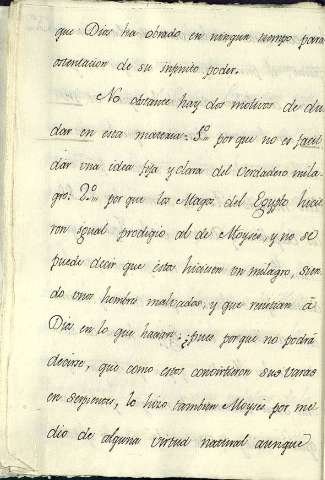 que Dios ha obrado en ningun tiempo para
ostentacion de su infinito poder.
No obstante hay dos motivos de du
dar en esta materia. 1º por que no es facil
dar una idea fija y clara del verdadero mila
gro: 2º por que los Magos del Egypto hicie
ron igual prodigio al de Moyses, y no se
puede decir que estos hiciesen un milagro, sien
do unos hombres malvados, y que resistian á
Dios en lo que hacian: ¿pues por qué no podrá
decirse, que como estos convirtieron sus varas
en serpientes, lo hizo tambien Moyses por me
dio de alguna virtud natural aunque